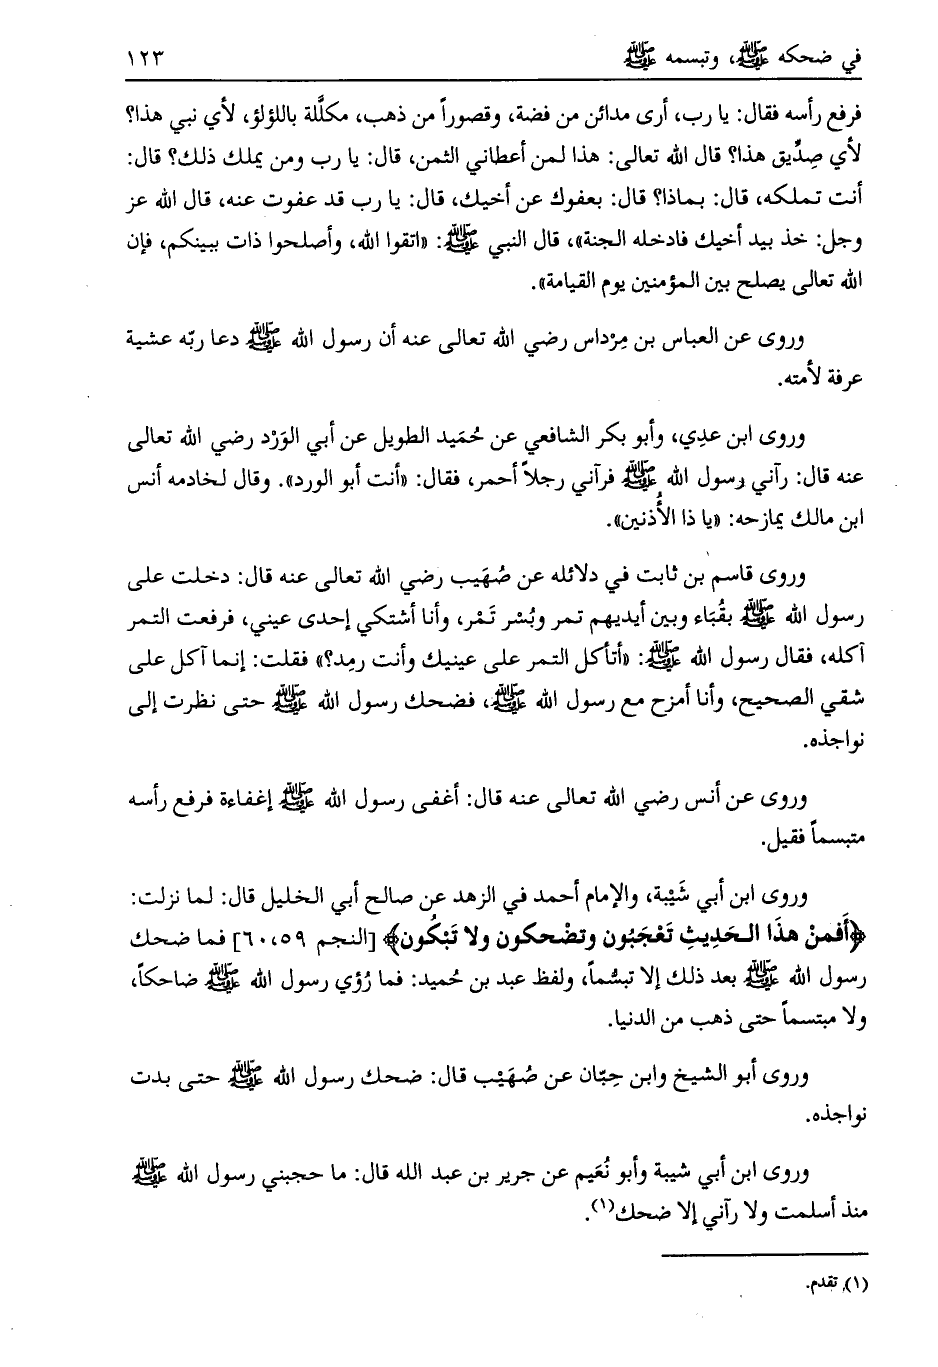 في ضحكه ﷺ، وتبسمه ﷺ ١٢٣
فرفع رأسه فقال: يا رب، أرى مدائن من فضة، وقصوراً من ذهب، مكلَّلة باللؤلؤ، لأي نبي هذا؟
لأي صِدِّيق هذا؟ قال الله تعالى: هذا لمن أعطاني الثمن، قال: يا رب ومن يملك ذلك؟ قال:
أنت تملكه، قال: بماذا؟ قال: بعفوك عن أخيك، قال: يا رب قد عفوت عنه، قال الله عز
وجل: خذ بيد أخيك فادخله الجنة»، قال النبي ﷺ: «اتقوا الله، وأصلحوا ذات ببينكم، فإن
الله تعالى يصلح بين المؤمنين يوم القيامة».
وروى عن العباس بن مِرْداس رضي الله تعالى عنه أن رسول الله ﷺ دعا ربّه عشية
عرفة لأمته.
وروى ابن عدِي، وأبو بكر الشافعي عن حُمَيد الطويل عن أبي الوَرْد رضي الله تعالى
عنه قال: رآني رسول الله ﷺ فرآني رجلاً أحمر، فقال: «أنت أبو الورد». وقال لخادمه أنس
ابن مالك يمازحه: «يا ذا الأُذنين».
وروى قاسم بن ثابت في دلائله عن صُهَيب رضي الله تعالى عنه قال: دخلت على
رسول الله ﷺ بقُبَاء وبين أيديهم تمر وبُسْر تَمْر، وأنا أشتكي إحدى عيني، فرفعت التمر
آكله، فقال رسول الله ﷺ: «أتأكل التمر على عينيك وأنت رمِد؟» فقلت: إنما آكل على
شقي الصحيح، وأنا أمزح مع رسول الله ﷺ، فضحك رسول الله ﷺ حتى نظرت إلى
نواجذه.
وروى عن أنس رضي الله تعالى عنه قال: أغفى رسول الله ﷺ إغفاءة فرفع رأسه
متبسماً فقيل.
وروى ابن أبي شَيْبة، والإمام أحمد في الزهد عن صالح أبي الخليل قال: لما نزلت:
﴿أَفَمنْ هذَا الحَدِيثِ تَعْجَبُون وتضْحكون ولا تَبْكُون﴾ [النجم ٥٩، ٦٠] فما ضحك
رسول الله ﷺ بعد ذلك إلا تبسُّماً، ولفظ عبد بن حُميد: فما رُؤي رسول الله ﷺ ضاحكاً،
ولا مبتسماً حتى ذهب من الدنيا.
وروى أبو الشيخ وابن حِبّان عن صُهَيْب قال: ضحك رسول الله ﷺ حتى بدت
نواجذه.
وروى ابن أبي شيبة وأبو نُعَيم عن جرير بن عبد الله قال: ما حجبني رسول الله ﷺ
منذ أسلمت ولا رآني إلا ضحك(١).
(١) تقدم.